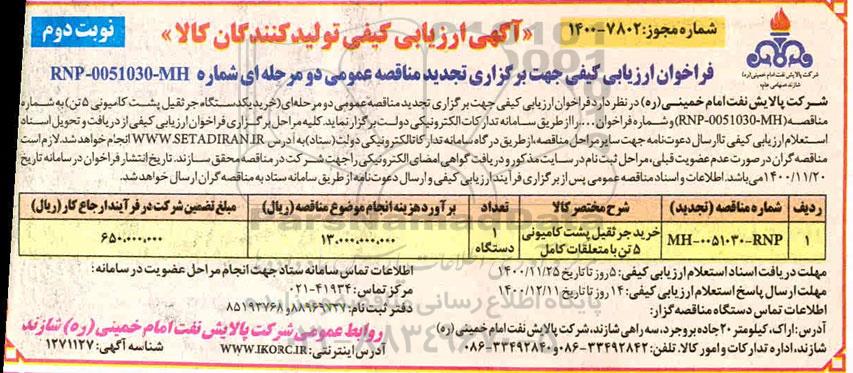 شماره مجوز: ۷۸۰۲-۱۴۰۰
«آگهی ارزیابی کیفی تولیدکنندگان کالا»
نوبت دوم
شرکت پالایش نفت امام خمینی (ره)
شازند (سهامی عام)
فراخوان ارزیابی کیفی جهت برگزاری تجدید مناقصه عمومی دو مرحله ای شماره RNP-0051030-MH
شرکت پالایش نفت امام خمینی (ره) در نظر دارد فراخوان ارزیابی کیفی جهت برگزاری تجدید مناقصه عمومی دو مرحله‌ای (خرید یکدستگاه جرثقیل پشت کامیونی ۵ تن) به شماره
مناقصه (RNP-0051030-MH) و شماره فراخوان .... را از طریق سامانه تدارکات الکترونیکی دولت برگزار نماید. کلیه مراحل برگزاری فراخوان ارزیابی کیفی از دریافت و تحویل اسناد
استعلام ارزیابی کیفی تا ارسال دعوت‌نامه جهت سایر مراحل مناقصه، از طریق درگاه سامانه تدارکات الکترونیکی دولت (ستاد) به آدرس WWW.SETADIRAN.IR انجام خواهد شد. لازم است
مناقصه گران در صورت عدم عضویت قبلی، مراحل ثبت نام در سایت مذکور و دریافت گواهی امضای الکترونیکی را جهت شرکت در مناقصه محقق سازند. تاریخ انتشار فراخوان در سامانه تاریخ
۱۴۰۰/۱۱/۲۰ می‌باشد. اطلاعات و اسناد مناقصه عمومی پس از برگزاری فرآیند ارزیابی کیفی و ارسال دعوت نامه از طریق سامانه ستاد به مناقصه گران ارسال خواهد شد.
ردیف شماره مناقصه (تجدید) شرح مختصر کالا تعداد برآورد هزینه انجام موضوع مناقصه (ریال) مبلغ تضمین شرکت در فرآیند ارجاع کار (ریال)
۱ MH-۰۰۵۱۰۳۰-RNP خرید جرثقیل پشت کامیونی ۵ تن با متعلقات کامل ۱ دستگاه ۱۳.۰۰۰.۰۰۰.۰۰۰ ۶۵۰.۰۰۰.۰۰۰
مهلت دریافت اسناد استعلام ارزیابی کیفی: ۵ روز تا تاریخ ۱۴۰۰/۱۱/۲۵
مهلت ارسال پاسخ استعلام ارزیابی کیفی: ۱۴ روز تا تاریخ ۱۴۰۰/۱۲/۱۱
اطلاعات تماس دستگاه مناقصه گزار:
آدرس: اراک، کیلومتر ۲۰ جاده بروجرد، سه راهی شازند، شرکت پالایش نفت امام خمینی (ره)
شازند، اداره تدارکات و امور کالا. تلفن: ۳۳۴۹۲۸۴۲-۰۸۶ و ۳۳۴۹۲۸۲۰-۰۸۶
اطلاعات تماس سامانه ستاد جهت انجام مراحل عضویت در سامانه:
مرکز تماس: ۴۱۹۳۴-۰۲۱
دفتر ثبت نام: ۸۸۹۶۹۷۳۷ و ۸۵۱۹۳۷۶۸
روابط عمومی شرکت پالایش نفت امام خمینی (ره) شازند
آدرس اینترنتی: WWW.IKORC.IR
شناسه آگهی: ۱۲۷۱۱۲۷